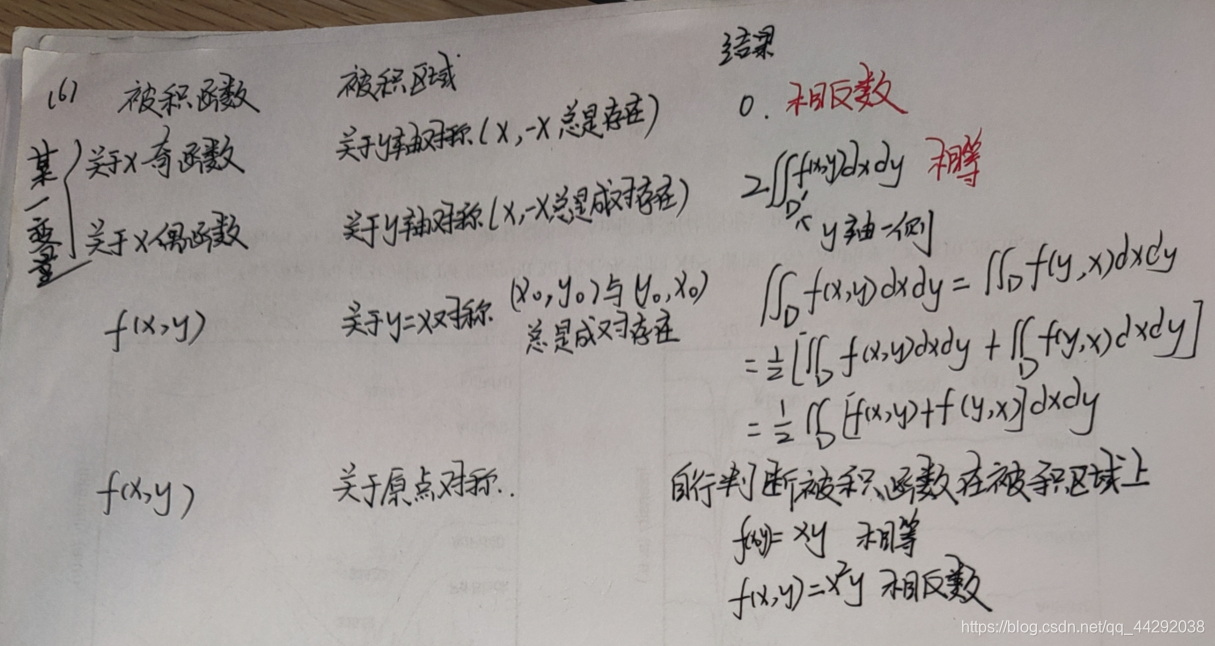 (6) 被积函数 被积区域 结果
某一变量
关于x奇函数 关于y轴对称(x,-x总是存在) 0. 相反数
关于x偶函数 关于y轴对称(x,-x总是成对存在) 2∬D'f(x,y)dxdy 相等
y轴一侧
f(x,y) 关于y=x对称 (x₀,y₀)与(y₀,x₀) ∬D f(x,y)dxdy = ∬D f(y,x)dxdy
总是成对存在
=½[∬D f(x,y)dxdy + ∬D f(y,x)dxdy]
=½∬D[f(x,y)+f(y,x)]dxdy
f(x,y) 关于原点对称.. 自行判断被积函数在被积区域上
f(x,y)=xy 相等
f(x,y)=x²y 相反数
https://blog.csdn.net/qq_44292038